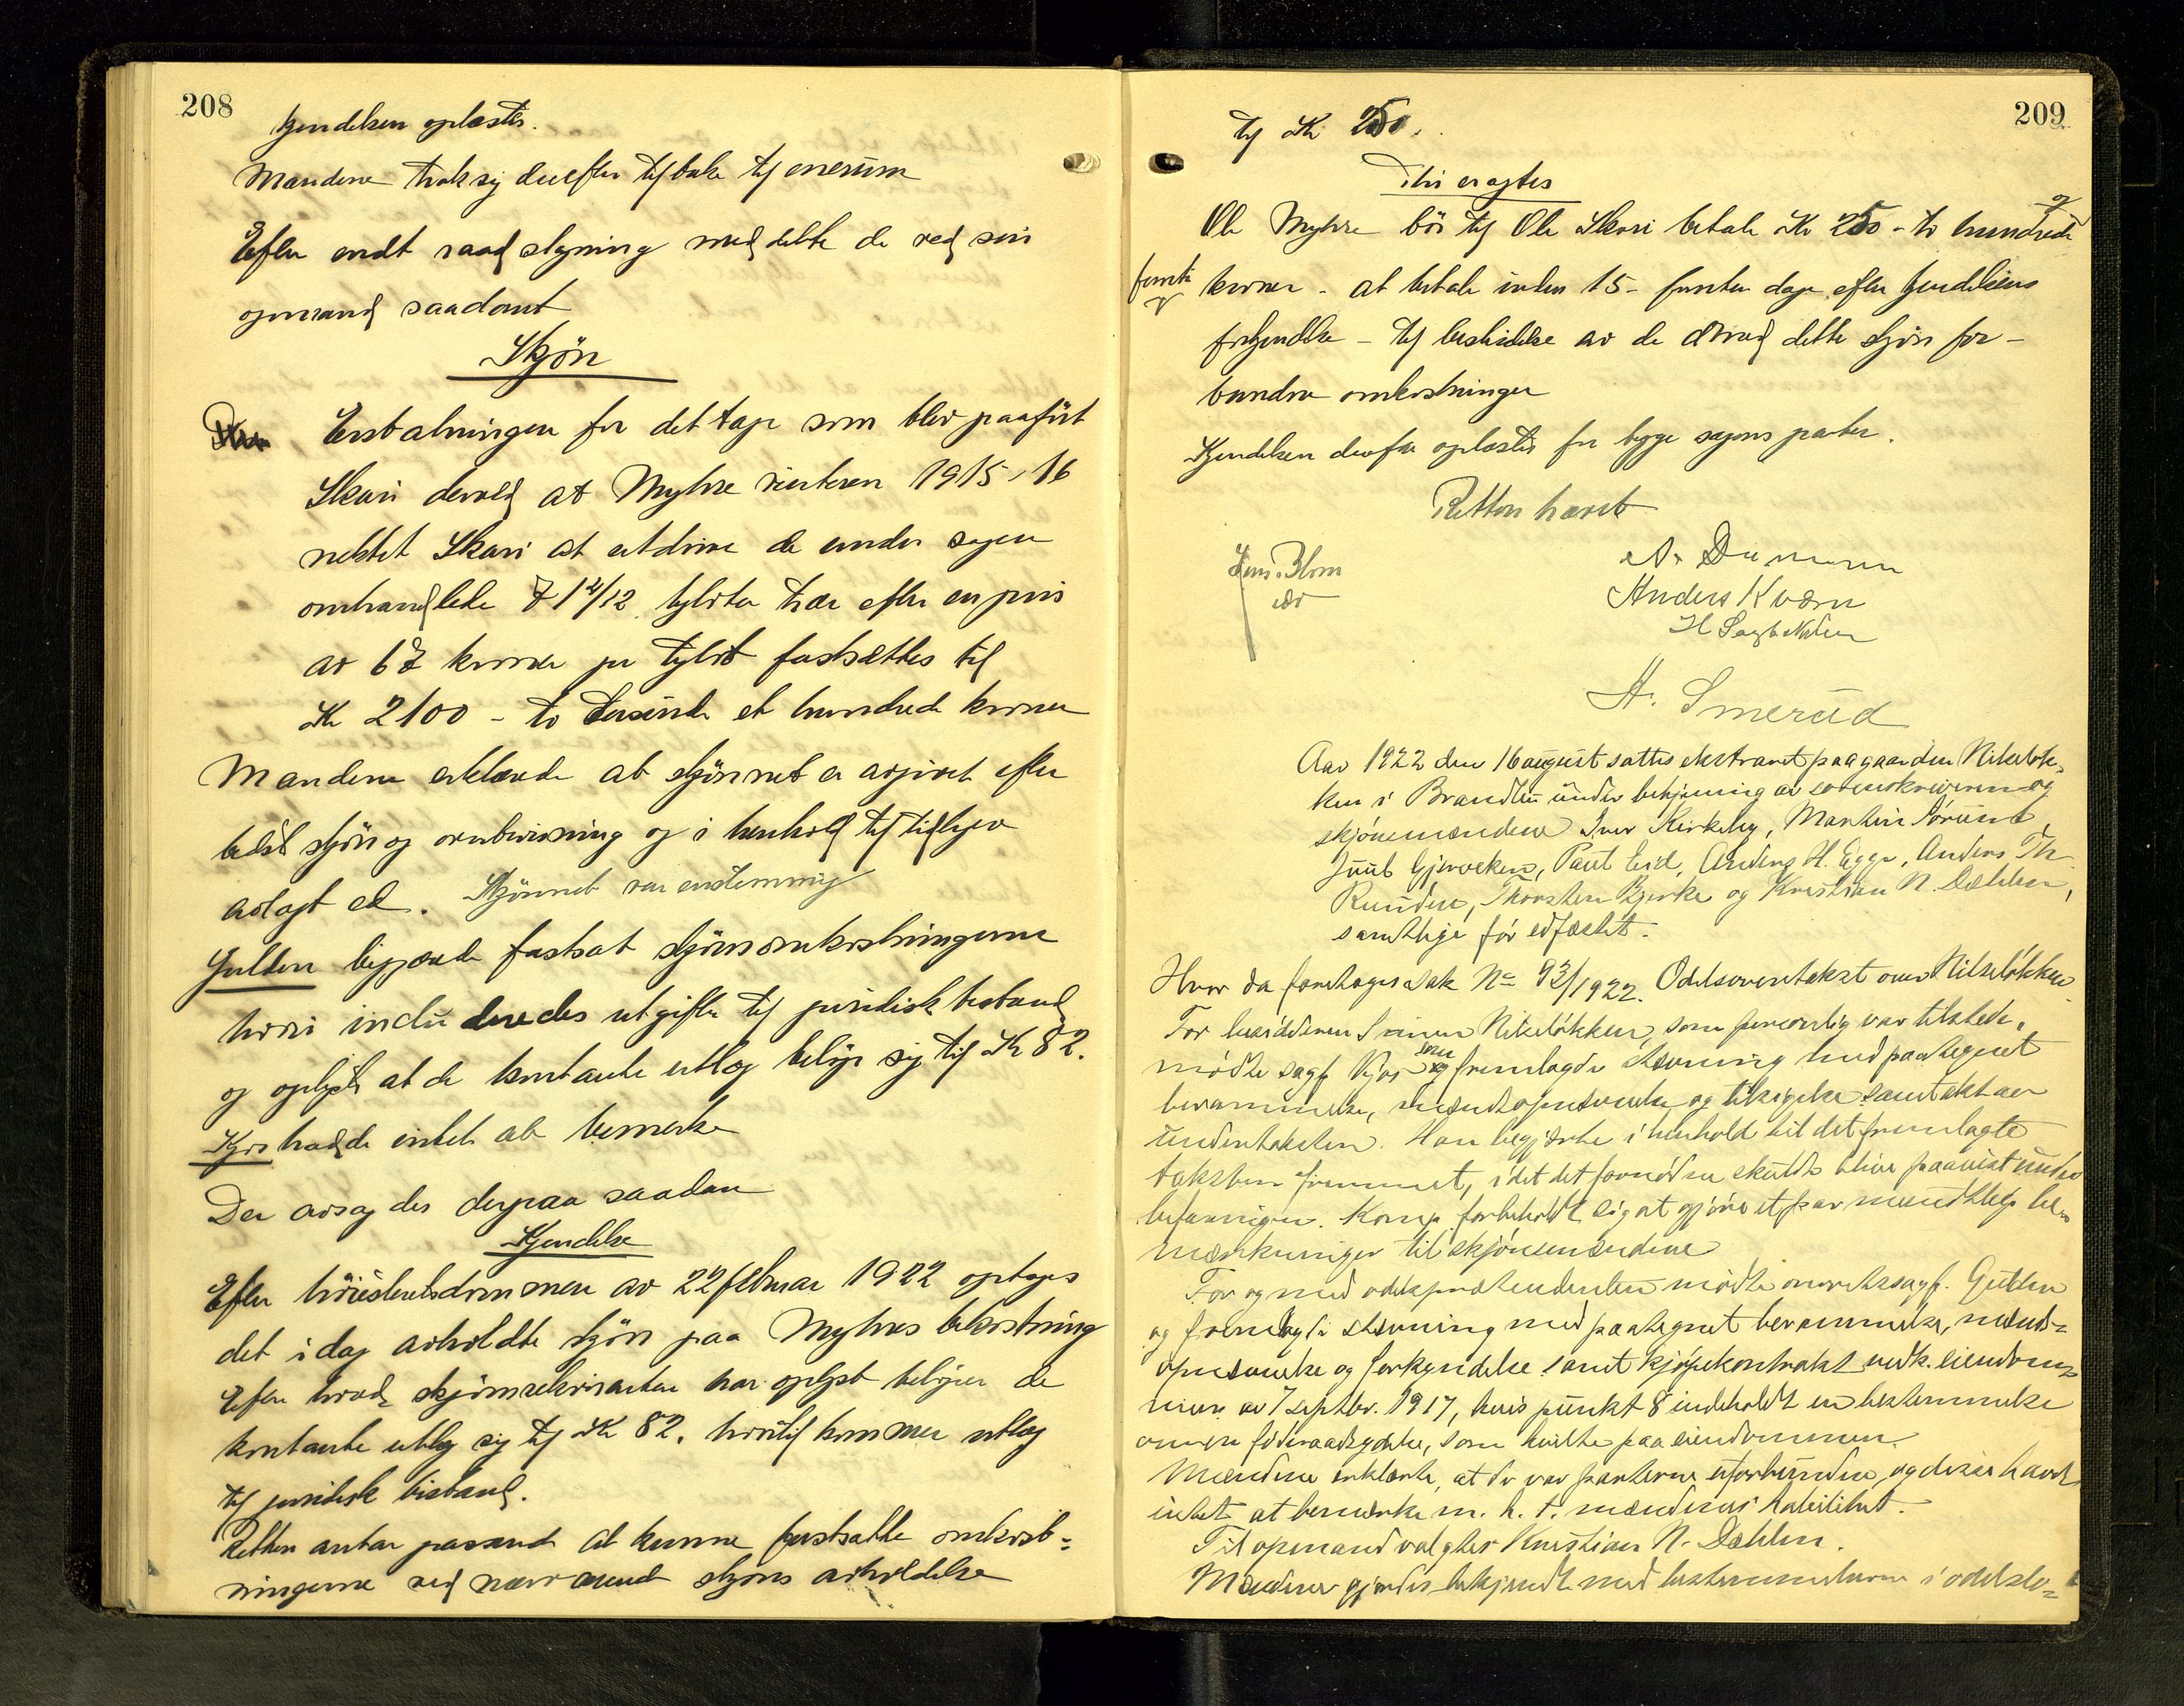 208
Kjendelsen oplæstes.
Mændene trak sig derefter tilbake til enerum
Efter endt raadslagning meddelte de ved sin
opmand saadant
Skjøn
Erstatningen for det tap som blev paaført
Skari derved at Myhre vinteren 1915-16
nektet Skari at utdrive de under sagen
omhandlede tylvter trær efter en pris
av kroner pr tylvt fastsættes til
Kr 2100 - to tusinde et hundrede kroner
Mændene erklærede at skjønnet er avgivet efter
bedste skjøn og overbevisning og i henhold til tidligere
avlagt ed. Skjønnet var enstemmig
Gulden begjærede fastsat skjønsomkostningerne
hvori inkluderedes utgifter til juridisk bistand
og oplyste at de kontante utlæg beløp sig til Kr 82.
Kjos hadde intet at bemerke
Der avsagdes derpaa saadan
Kjendelse
Efter høiesteretsdommen av 22 februar 1922 optages
det idag avholdte skjøn paa Myhres bekostning
Efter hvad skjønsrekvirenten har oplyst beløper de
kontante utlæg sig til Kr 82. hvortil kommer utlæg
til juridisk bistand.
Retten antar passende at kunne fastsætte omkost=
ningerne ved nærværende skjøns avholdelse
209
til Kr 250.
Thi eragtes
Ole Myhre bør til Ole Skari betale Kr 250 - to hundrede og
femti kroner - at betale inden 15 - femten dage efter kjendelsens
forkyndelse - til bestridelse av de med dette skjøn for-
bundne omkostninger
Kjendelsen derefter oplæstes for begge sagens parter.
Retten hævet
A. Dæmmen
Jens Blom
Anders Kværn
H.
H. Smerud
Aar 1922 den 16 august sattes ekstraret paa gaarden Nikeløk-
ken i Brandbu under betjening av sorenskriveren og
skjønsmændene Iver Kirkeby, Martin Sørum,
Juul Gjervoken, Paul Eid, Anders H. Egge, Anders Th.
Runden, Thorsten Bjerke og Kristian N. Dæhlen,
samtlige før edfæstet.
Hvor da foretoges sak No 93/1922. Odelsovertakst over Nikeløkken
For besidderen Nikeløkken, som personlig var tilstede,
møtte sagf. Kjos som fremlagde stevning med paategnet
berammelse, mændsopnevnelse og tilsigelse samt akt av
undertaksten. Han begjærte i henhold til det fremlagte
taksten fremmet, idet det fornødne skulde blive paavist under
befaringen. Komp. forbeholdt sig at gjøre et par mundtlige be-
merkninger til skjønsmændene
For og med odelspretendenten møtte overretssagf. Gulden
og fremlagde stevning med paategnet berammelse, mænds-
opnevnelse og forkyndelse samt kjøpekontrakt vedk. eiendom-
men av 7 septbr. 1917, hvis punkt 8 indeholdt en bestemmelse
om en føderaadsydelse, som hvilte paa eiendommen.
Mændene erklærte, at de var parterne uforbundne, og disse havde
intet at bemerke m. h. t. mændenes habilitet.
Til opmand valgtes Kristian N. Dæhlen.
Mændene gjordes bekjendt med bestemmelserne i odelslo=